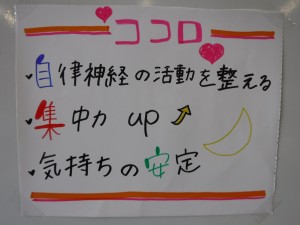 ココロ
・自律神経の活動を整える
・集中力 up
・気持ちの安定